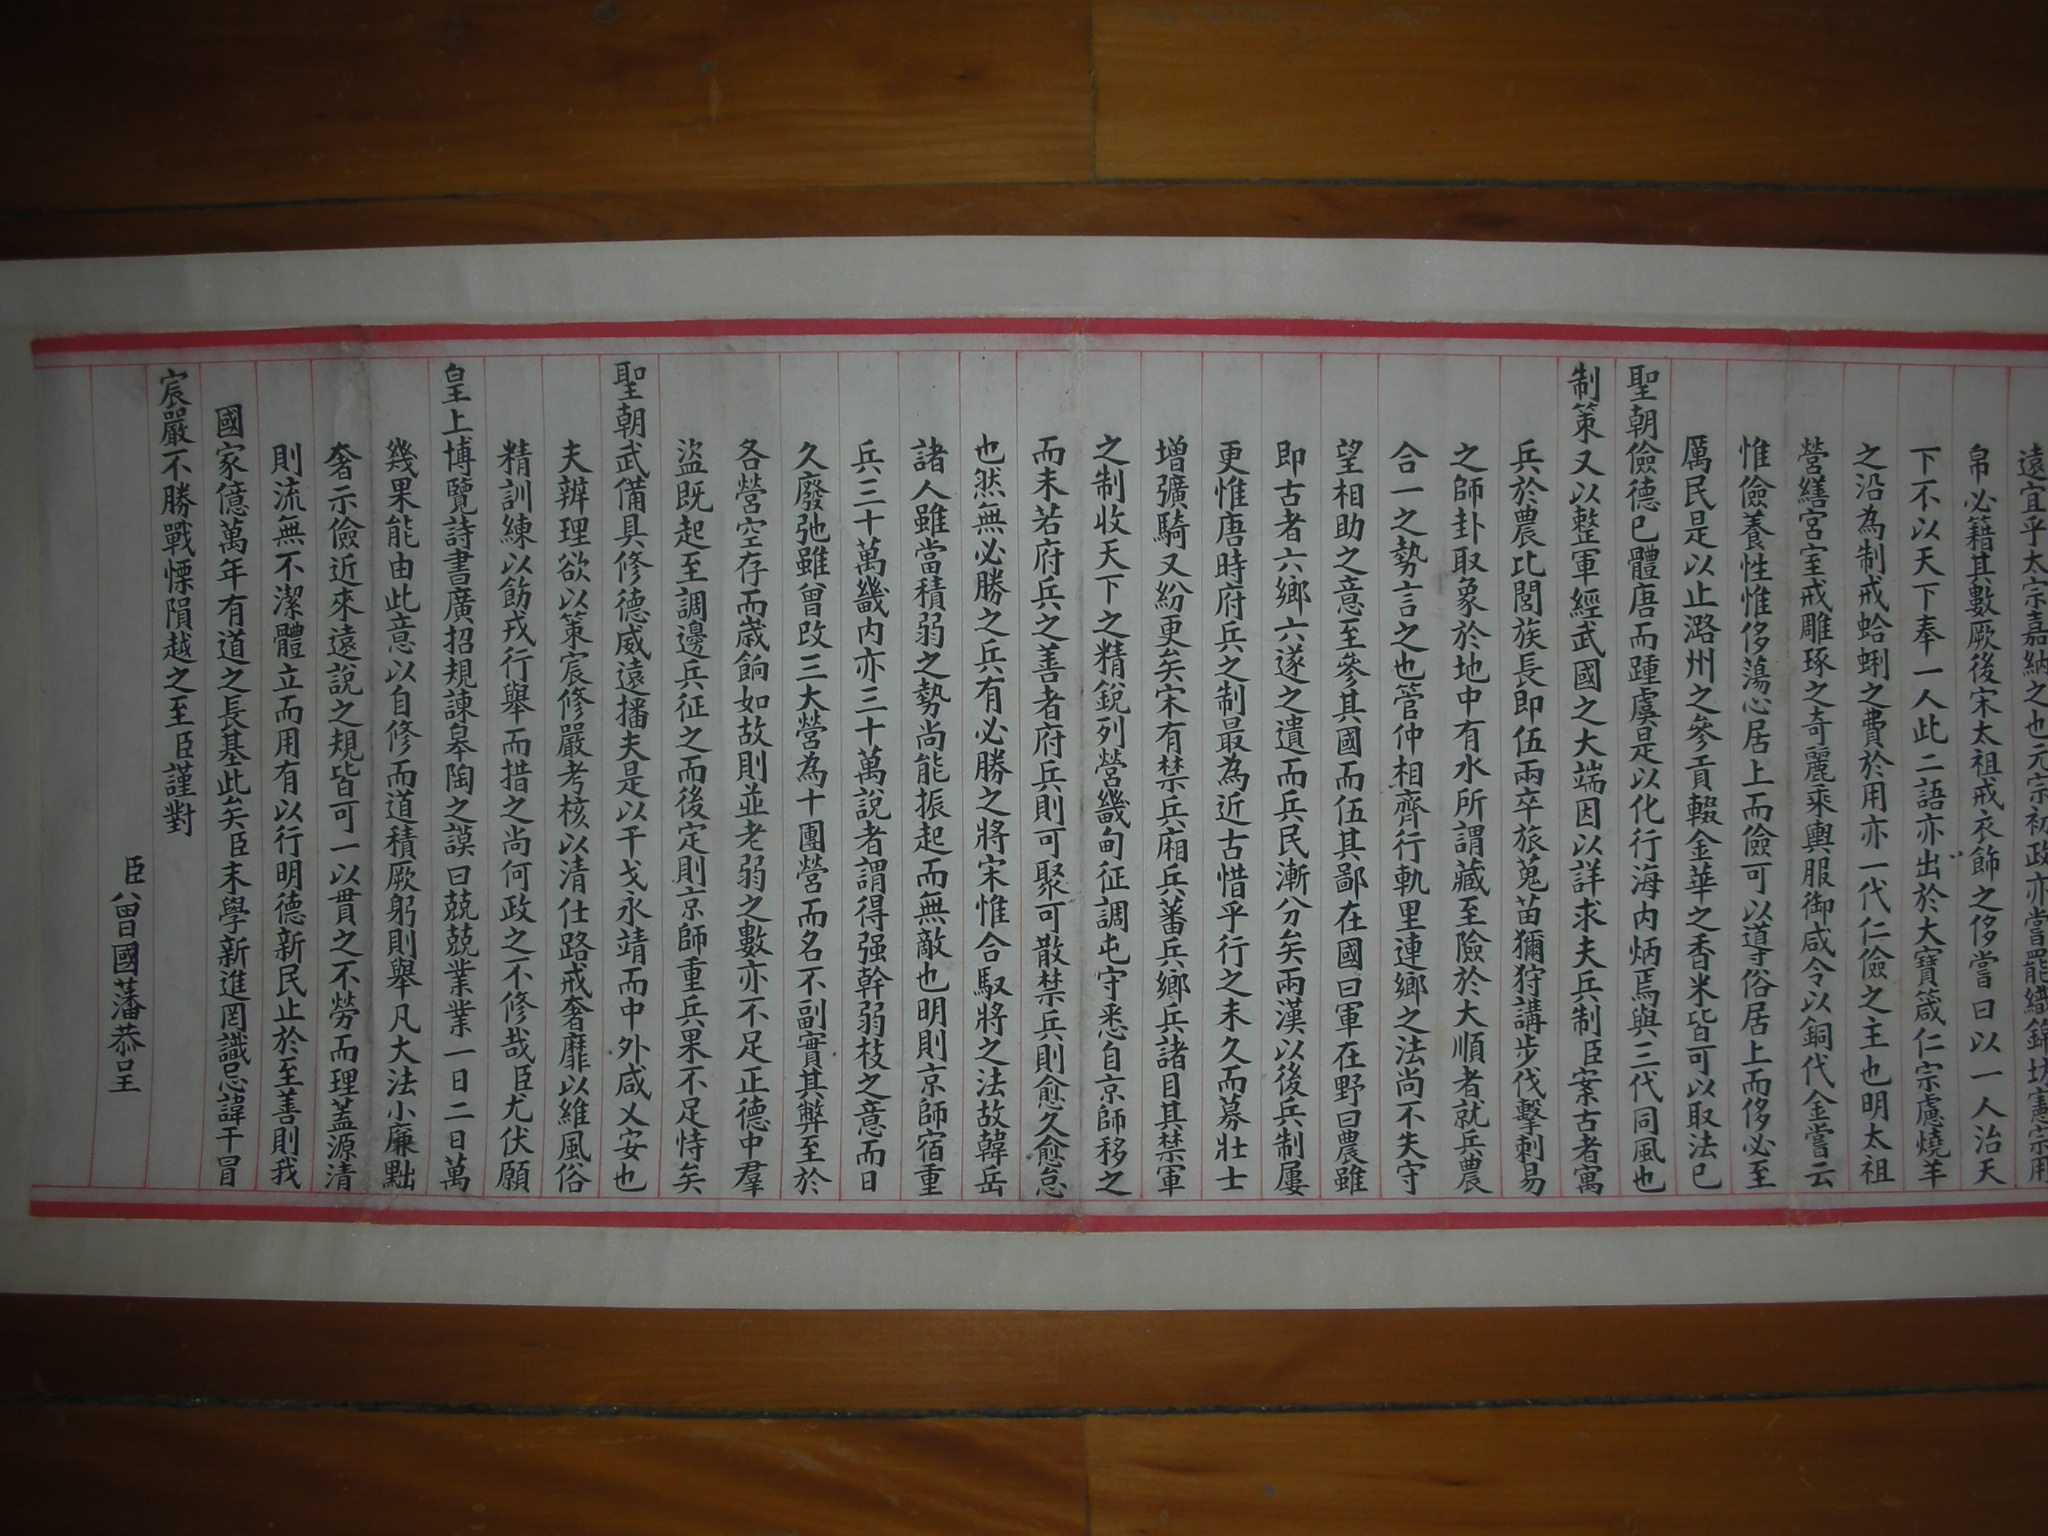 遠宜乎太宗嘉納之也元宗初政亦嘗罷織錦坊憲宗用
帛必籍其數厥後宋太祖戒衣飾之侈嘗曰以一人治天
下不以天下奉一人此二語亦出於大寶箴仁宗慮燒羊
之沿為制戒蛤蜊之費於用亦一代仁儉之主也明太祖
營繕宮室戒雕琢之奇麗乘輿服御咸令以銅代金嘗云
惟儉養性惟侈蕩心居上而儉可以導俗居上而侈必至
厲民是以止潞州之參貢輟金華之香米皆可以取法已
聖朝儉德已體唐而踵虞是以化行海內炳焉與三代同風也
制策又以整軍經武國之大端因以詳求夫兵制臣案古者寓
兵於農比閭族長即伍兩卒旅蒐苗獮狩講步伐擊刺易
之師卦取象於地中有水所謂藏至險於大順者就兵農
合一之勢言之也管仲相齊行軌里連鄉之法尚不失守
望相助之意至參其國而伍其鄙在國曰軍在野曰農雖
即古者六鄉六遂之遺而兵民漸分矣兩漢以後兵制屢
更惟唐時府兵之制最為近古惜乎行之未久而募壯士
增彍騎又紛更矣宋有禁兵廂兵蕃兵鄉兵諸目其禁軍
之制收天下之精銳列營畿甸征調屯守悉自京師移之
而未若府兵之善者府兵則可聚可散禁兵則愈久愈怠
也然無必勝之兵有必勝之將宋惟合馭將之法故韓岳
諸人雖當積弱之勢尚能振起而無敵也明則京師宿重
兵三十萬畿內亦三十萬說者謂得强幹弱枝之意而日
久廢弛雖曾改三大營為十團營而名不副實其弊至於
各營空存而歲餉如故則並老弱之數亦不足正德中羣
盜既起至調邊兵征之而後定則京師重兵果不足恃矣
聖朝武備具修德威遠播夫是以干戈永靖而中外咸乂安也
夫辦理欲以策宸修嚴考核以清仕路戒奢靡以維風俗
精訓練以飭戎行舉而措之尚何政之不修哉臣尤伏願
皇上博覽詩書廣招規諫皋陶之謨曰兢兢業業一日二日萬
幾果能由此意以自修而道積厥躬則舉凡大法小廉黜
奢示儉近來遠說之規皆可一以貫之不勞而理蓋源清
則流無不潔體立而用有以行明德新民止於至善則我
國家億萬年有道之長基此矣臣末學新進罔識忌諱干冒
宸嚴不勝戰慄隕越之至臣謹對
臣曾國藩恭呈